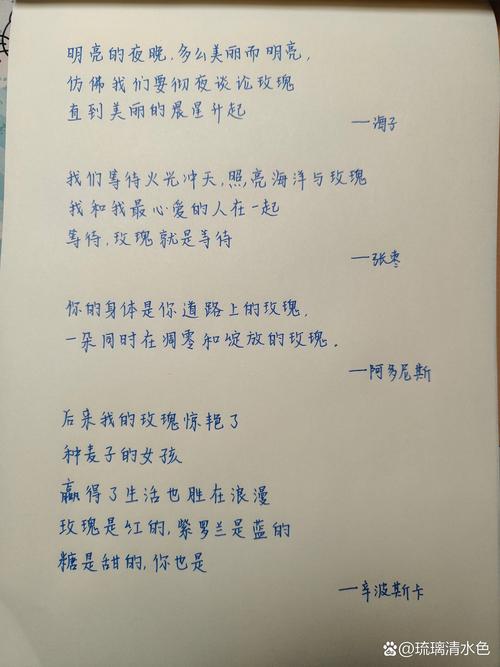 明亮的夜晚,多么美丽而明亮,
仿佛我们要彻夜谈论玫瑰
直到美丽的晨星升起
—海子
我们等待火光冲天,照亮海洋与玫瑰
我和我最心爱的人在一起
等待,玫瑰就是等待
—张枣
你的身体是你道路上的玫瑰,
一朵同时在凋零和绽放的玫瑰.
—阿多尼斯
后来我的玫瑰惊艳了
种麦子的女孩
赢得了生活也胜在浪漫
玫瑰是红的,紫罗兰是蓝的
糖是甜的,你也是
—辛波斯卡
百家号/琉璃清水色